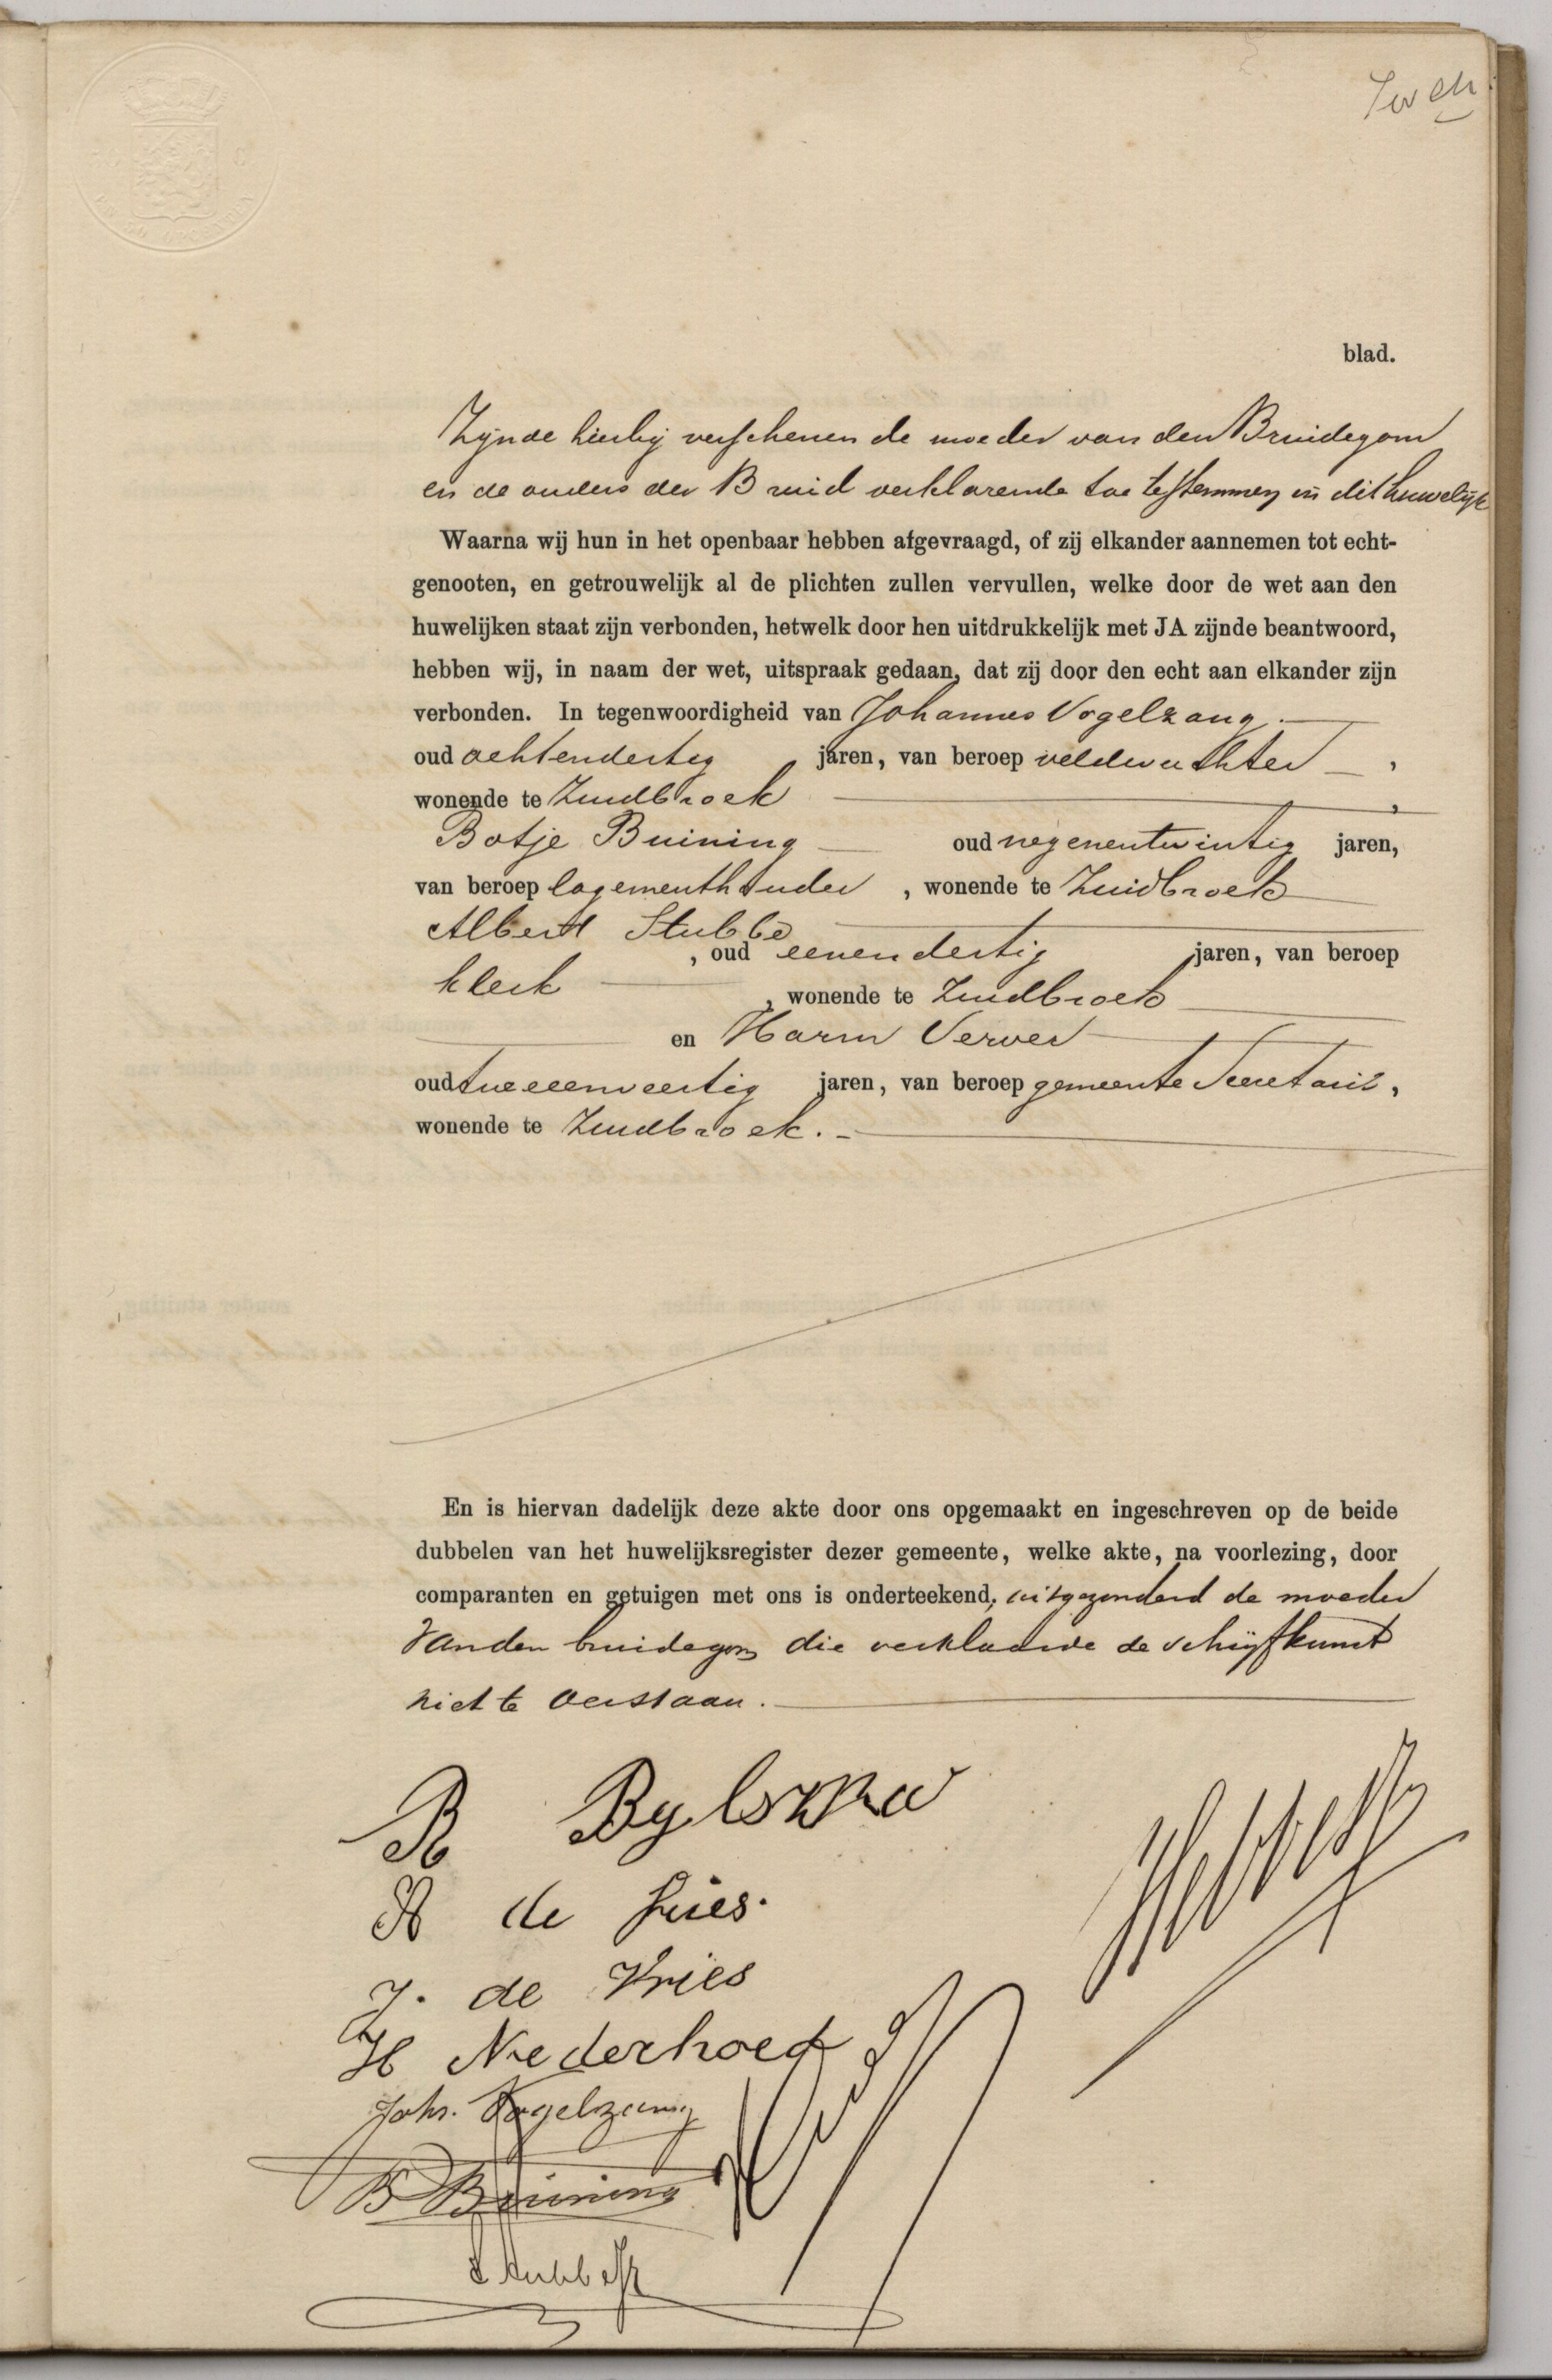 blad.
Zijnde hierbij verschenen de moeder van den Bruidegom
en de ouders der Bruid verklarende toe te stemmen in dit huwelijk
Waarna wij hun in het openbaar hebben afgevraagd, of zij elkander aannemen tot echt-
genooten, en getrouwelijk al de plichten zullen vervullen, welke door de wet aan den
huwelijken staat zijn verbonden, hetwelk door hen uitdrukkelijk met JA zijnde beantwoord,
hebben wij, in naam der wet, uitspraak gedaan, dat zij door den echt aan elkander zijn
verbonden. In tegenwoordigheid van Johannes Vogelzang.
oud achtendertig jaren, van beroep veldwachter,
wonende te Zuidbroek,
Botje Buining oud negenentwintig jaren,
van beroep logementhouder, wonende te Zuidbroek
Albert Stubbe
, oud eenendertig jaren, van beroep
klerk, wonende te Zuidbroek
en Harm Verver
oud tweeenveertig jaren, van beroep gemeente Secretaris,
wonende te Zuidbroek.
En is hiervan dadelijk deze akte door ons opgemaakt en ingeschreven op de beide
dubbelen van het huwelijksregister dezer gemeente, welke akte, na voorlezing, door
comparanten en getuigen met ons is onderteekend, uitgezonderd de moeder
van den bruidegom die verklaarde de schrijfkunst
niet te verstaan.
R Bylsma
A de Fries.
J. de Vries
H Nederhoed
Johs. Vogelzang
B Buining
A Stubbe